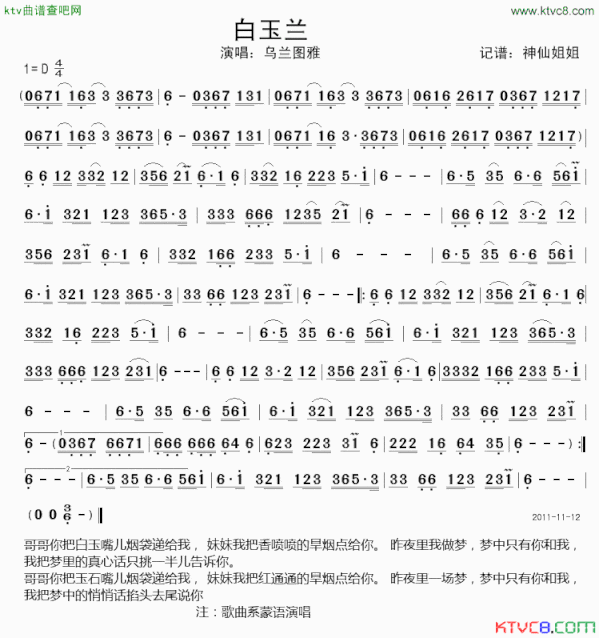 ktv曲谱查吧网 www.ktvc8.com
白玉兰
演唱：乌兰图雅 记谱：神仙姐姐
1=D 4/4
(0671 163 3 3673 | 6 - 0367 131 | 0671 163 3 3673 | 0616 2617 0367 1217 |
0671 163 3 3673 | 6 - 0367 131 | 0671 16 3·3673 | 0616 2617 0367 1217) |
6 6 12 332 12 | 356 21 6·1 6 | 332 16 223 5·i | 6 - - - | 6·5 35 6·6 56i |
6·i 321 123 365·3 | 333 666 1235 21 | 6 - - - | 66 6 12 3·2 12 |
356 231 6·1 6 | 332 166 233 5·i | 6 - - - | 6·5 35 6·6 56i |
6·i 321 123 365·3 | 33 66 123 231 | 6 - - - |: 6 6 12 332 12 | 356 21 6·1 6 |
332 16 223 5·i | 6 - - - | 6·5 35 6·6 56i | 6·i 321 123 365·3 |
333 666 123 231 | 6 - - - | 6 6 6·2 3·2 12 | 356 231 6·1 6 | 332166 233 5·i |
6 - - - | 6·5 35 6·6 56i | 6·i 321 123 365·3 | 33 66 123 231 |
1
6 - (0367 6671 | 666 666 64 6 | 623 223 31 6 | 222 16 64 35 | 6 - - -) :|
2
6 - - - | 6·5 35 6·6 56i | 6·i 321 123 365·3 | 33 66 123 231 |
(0 0 3/6 -) ‖ 2011-11-12
哥哥你把白玉嘴儿烟袋递给我， 妹妹我把香喷喷的旱烟点给你。 昨夜里我做梦，梦中只有你和我，
我把梦里的真心话只挑一半儿告诉你。
哥哥你把玉石嘴儿烟袋递给我， 妹妹我把红通通的旱烟点给你。 昨夜里一场梦，梦中只有你和我，
我把梦中的悄悄话掐头去尾说你
注：歌曲系蒙语演唱
KTVC8.COM